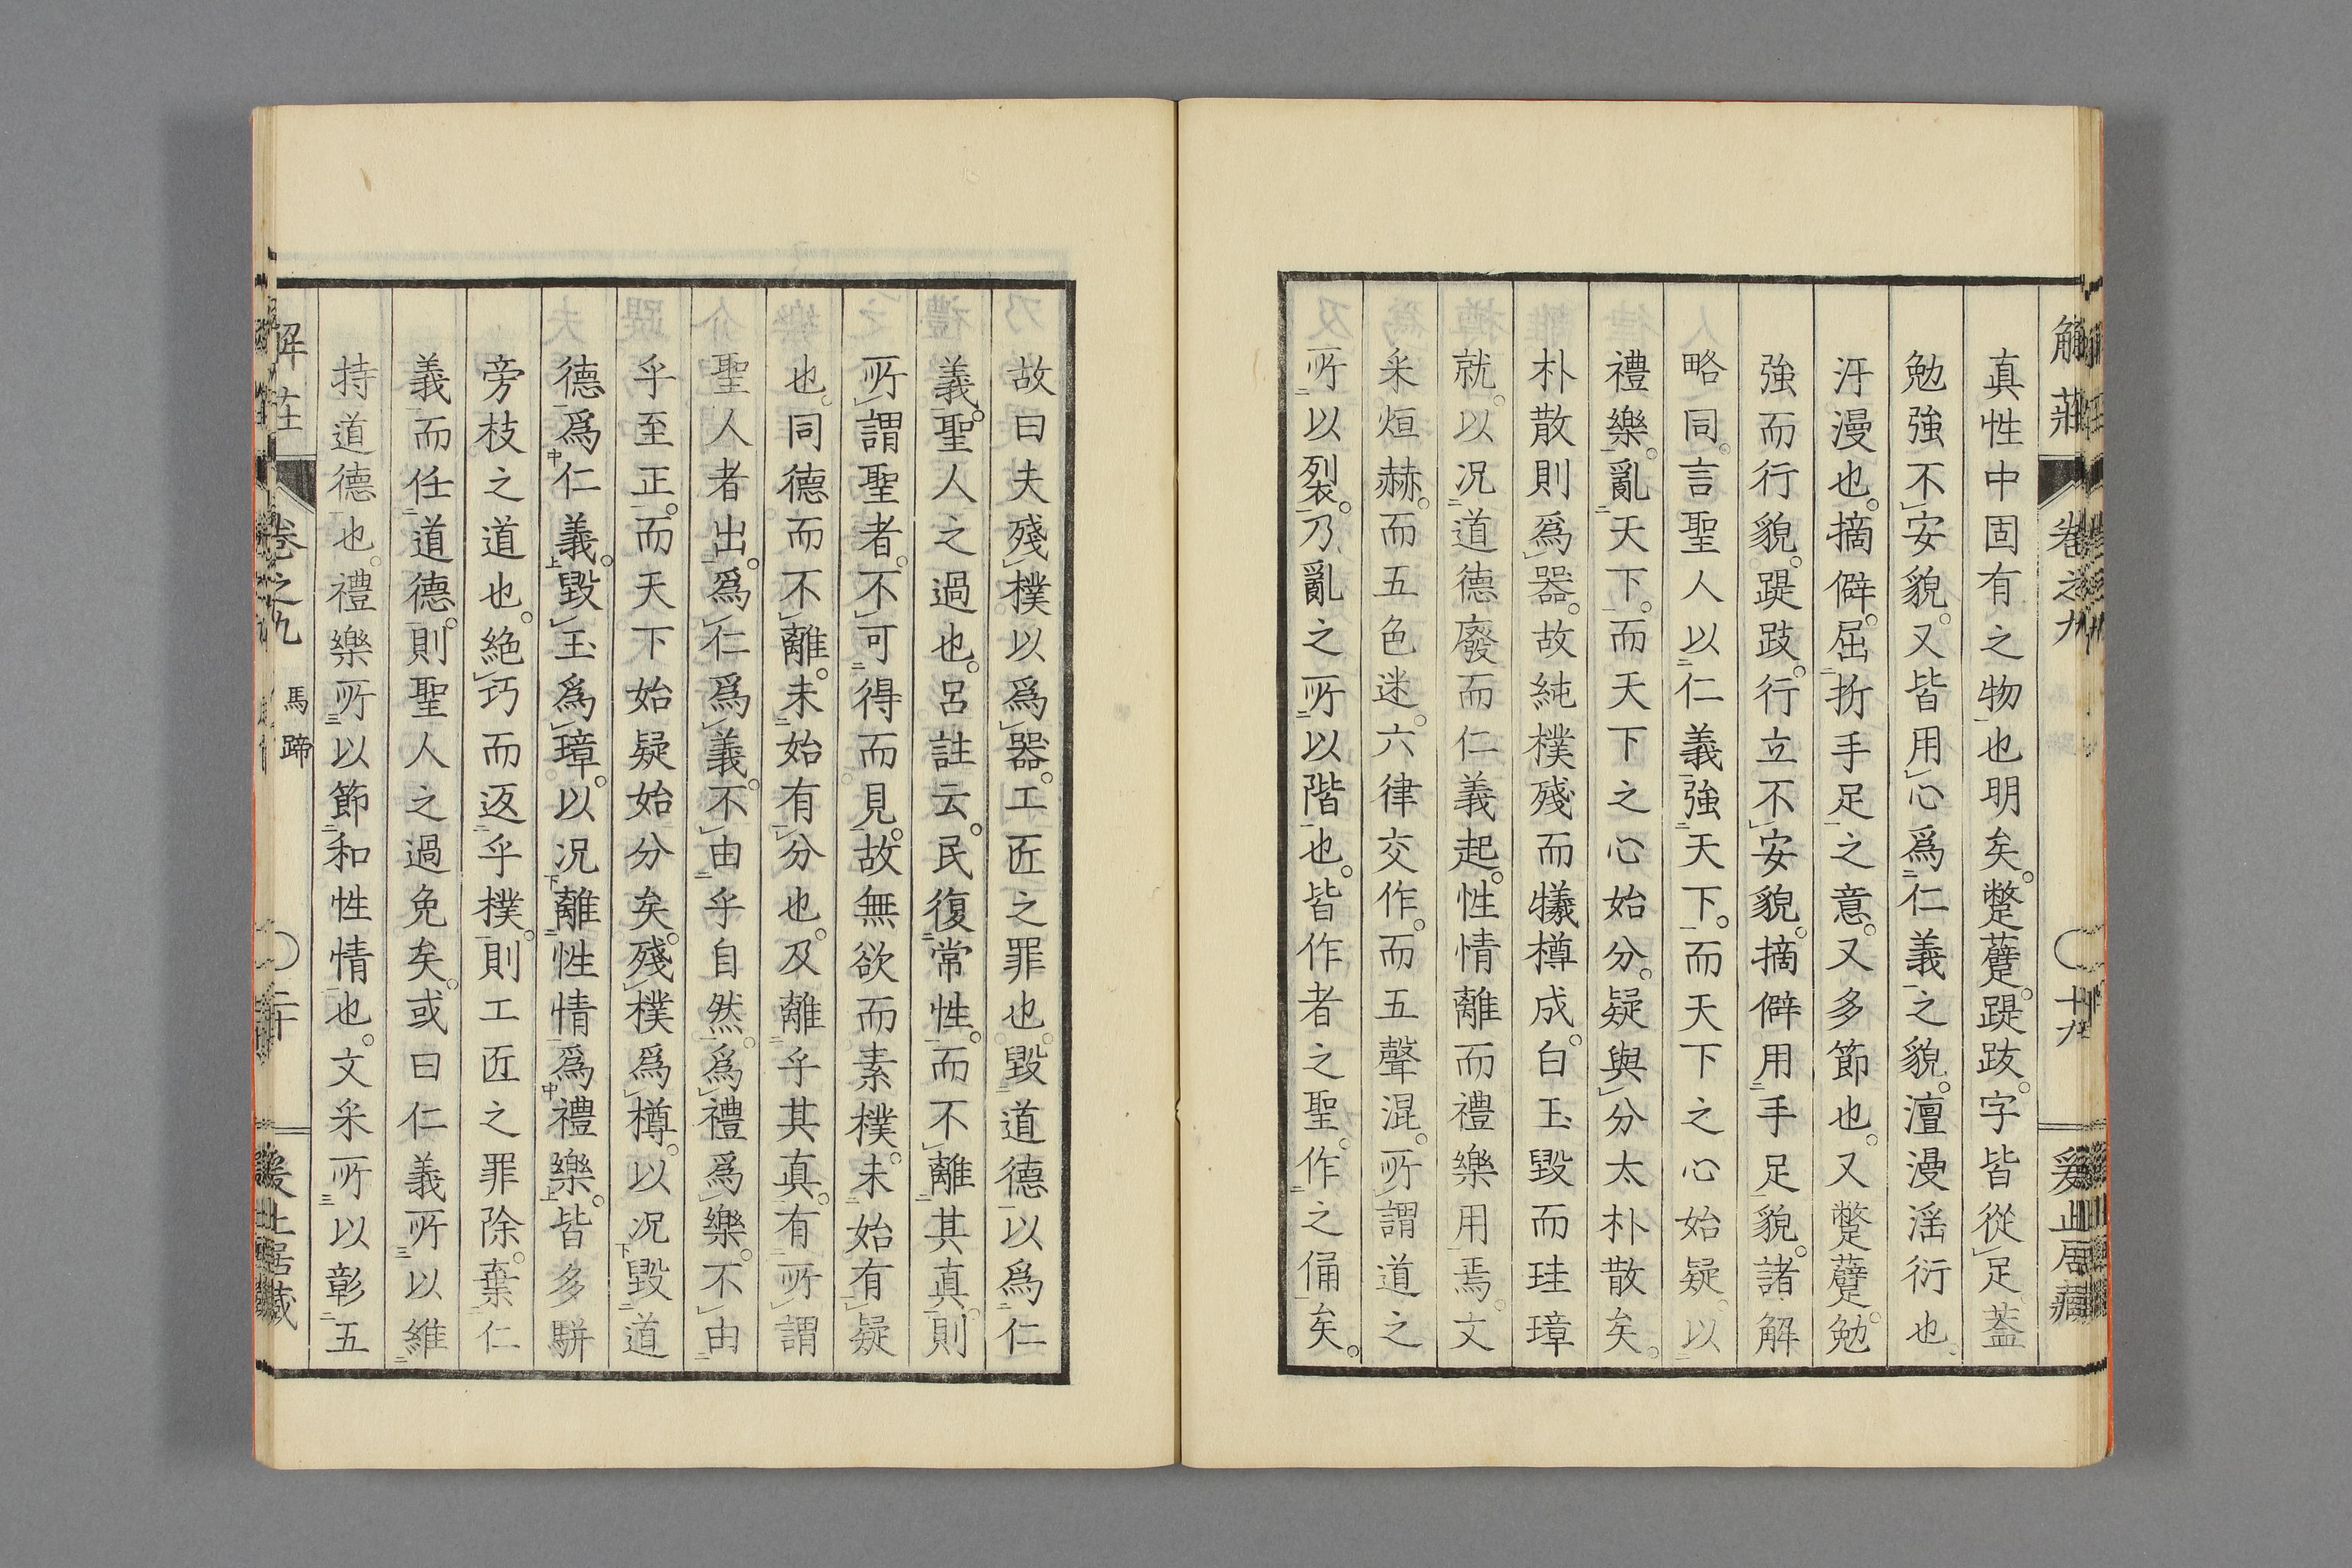 真性中固有之物也明矣。蹩躠。踶跂。字皆從足。蓋
勉強不安貌。又皆用心爲仁義之貌。澶漫滛衍也。
汙漫也。摘僻。屈折手足之意。又多節也。又蹩躠。勉
強而行貌。踶跂。行立不安貌。摘僻用手足貌。諸解
略同。言聖人以仁義強天下。而天下之心始疑。以
禮樂亂天下。而天下之心始分。疑與分太朴散矣。
朴散則爲器。故純樸殘而犧樽成。白玉毀而珪璋
就。以况道德廢而仁義起。性情離而禮樂用焉。文
采烜赫。而五色迷。六律交作。而五聲混。所謂道之
所以裂。乃亂之所以階也。皆作者之聖。作之俑矣。
故曰夫殘樸以爲器。工匠之罪也。毀道德以爲仁
義。聖人之過也。呂註云。民復常性。而不離其真。則
所謂聖者。不可得而見。故無欲而素樸。未始有疑
也。同德而不離。未始有分也。及離乎其真。有所謂
聖人者出。爲仁爲義。不由乎自然。爲禮爲樂。不由
乎至正。而天下始疑始分矣。殘樸爲樽。以况毀道
德爲仁義。毀玉爲璋。以况離性情爲禮樂。皆多駢
旁枝之道也。絶巧而返乎樸。則工匠之罪除。棄仁
義而任道德。則聖人之過免矣。或曰仁義所以維
持道德也。禮樂所以節和性情也。文采所以彰五
卷之九 馬蹄